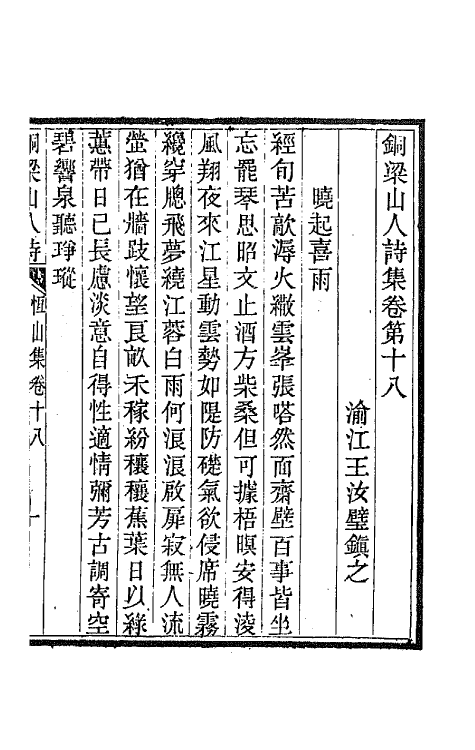 銅梁山人詩集卷第十八
渝江王汝璧鎮之
曉起喜雨
經旬苦歊溽火繖雲峯張嗒然面齋壁百事皆坐
忘罷琴思昭文止酒方柴桑但可據梧瞑安得淩
風翔夜來江星動雲勢如隄防礎氣欲侵席曉霧
纔穿牕飛夢繞江蓉白雨何浪浪啟扉寂無人流
螢猶在牆跂懷望艮畝禾稼紛穰穰蕉葉日以綠
蕙帶日已長慮淡意自得性適情彌芳古調寄空
碧響泉聽琤瑽
銅梁山人詩 恆山集卷十八 一